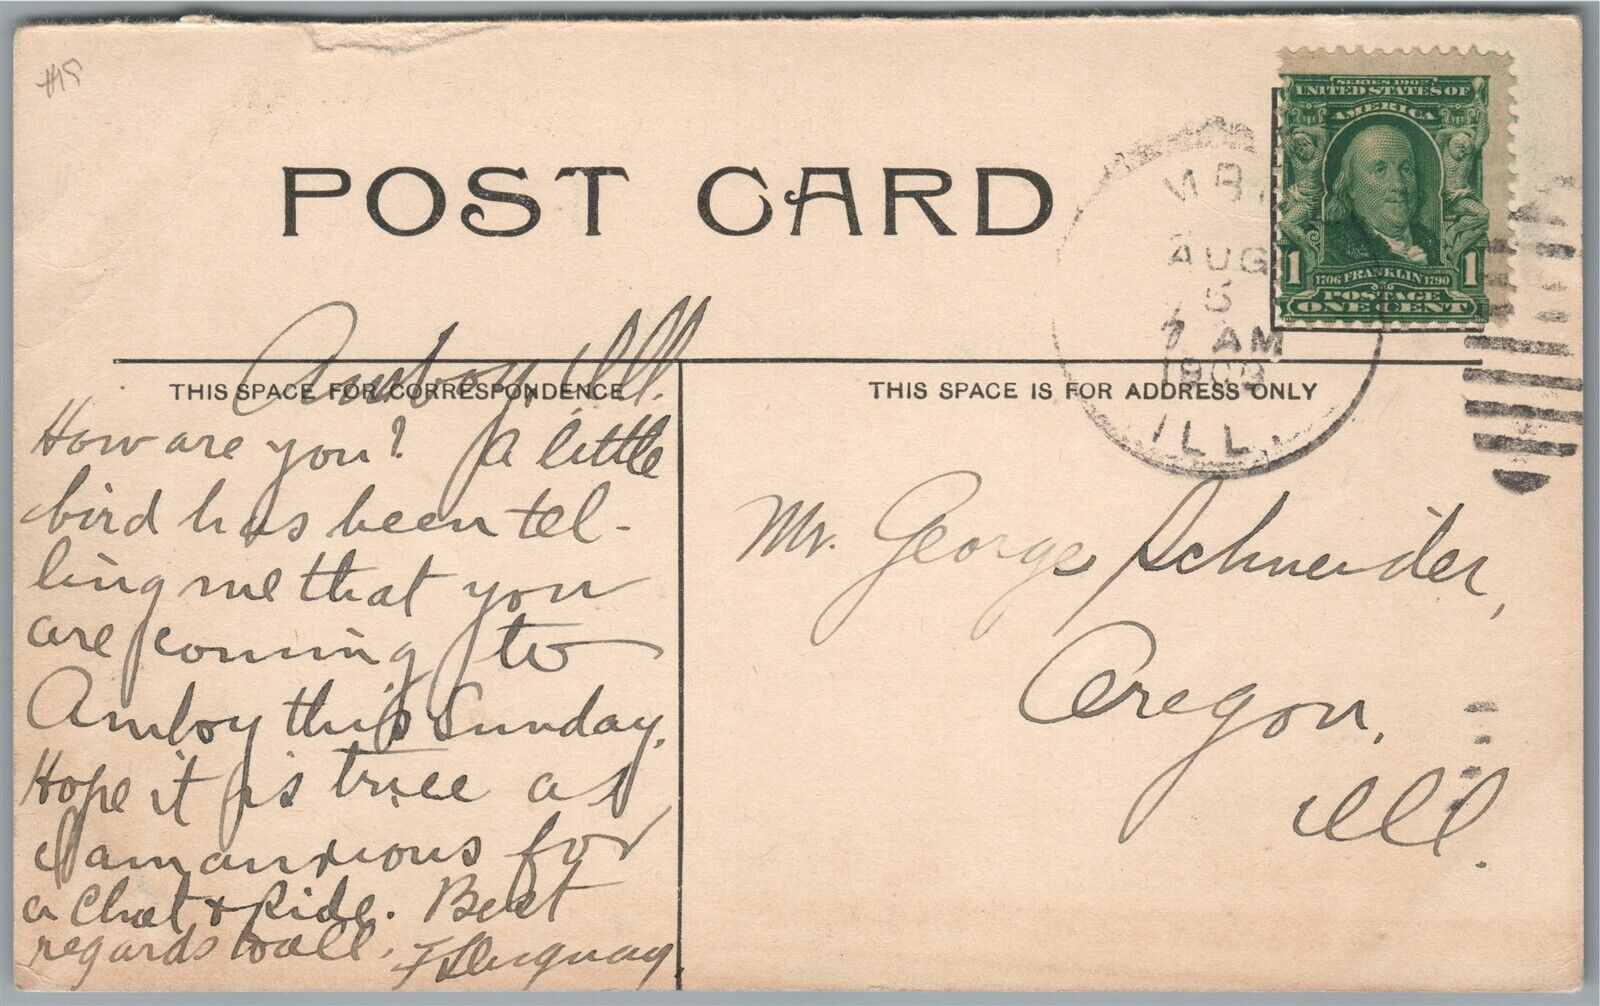 #15
SERIES 1902
UNITED STATES OF
AMERICA
1 1706 FRANKLIN 1790 1
POSTAGE
ONE CENT
POST CARD
AUG
5
7 AM
ILL.
Amboy, Ill.
THIS SPACE FOR CORRESPONDENCE
How are you? A little
bird has been tel-
ling me that you
are coming to
Amboy this Sunday.
Hope it is true as
I am anxious for
a chat & Ride. Best
regards to all.
THIS SPACE IS FOR ADDRESS ONLY
Mr. George Schneider,
Oregon,
Ill.